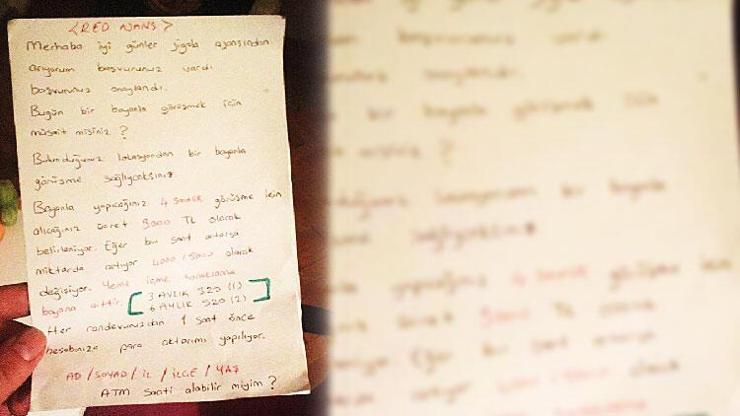 <RED AJANS>
Merhaba iyi günler jigolo ajansından
arıyorum başvurunuz vardı
başvurunuz onaylandı.
Bugün bir bayanla görüşmek için
müsait misiniz ?
Bulunduğunuz lokasyondan bir bayanla
görüşme sağlıyacaksınız
Bayanla yapacağınız 4 saatlik görüşme için
alıcağınız ücret 3000 TL olarak
belirleniyor. Eğer bu saat artarsa
miktarda artıyor 4000 / 5000 olarak
değişiyor. Yeme içme konaklama
bayana aittir. [3 AYLIK 320 (1)
6 AYLIK 520 (2)]
Her randevunuzdan 1 saat önce
hesabınıza para aktarımı yapılıyor.
AD / SOYAD / İL / İLÇE / YAŞ
ATM saati alabilir miyim ?